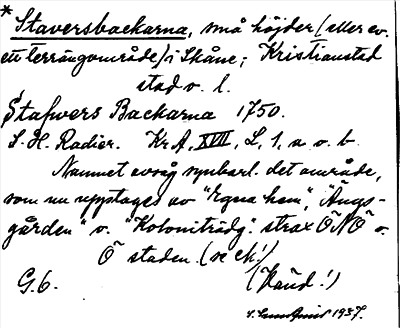 * Staversbackarna, små höjder (eller ev.
ett terrängområde) i Skåne; Kristianstad
stad o. l.
Stafwers Backarna 1750.
S. H. Radier. Kr A, XVII, L, 1, a o. b
Namnet avsåg synbarl. det område,
som nu upptages av "Egna hem", "Ängs-
gården" o. "Koloniträdg." strax ÖNÖ o.
Ö staden. (se ek!)
G. 6. (Känd!)
1937.